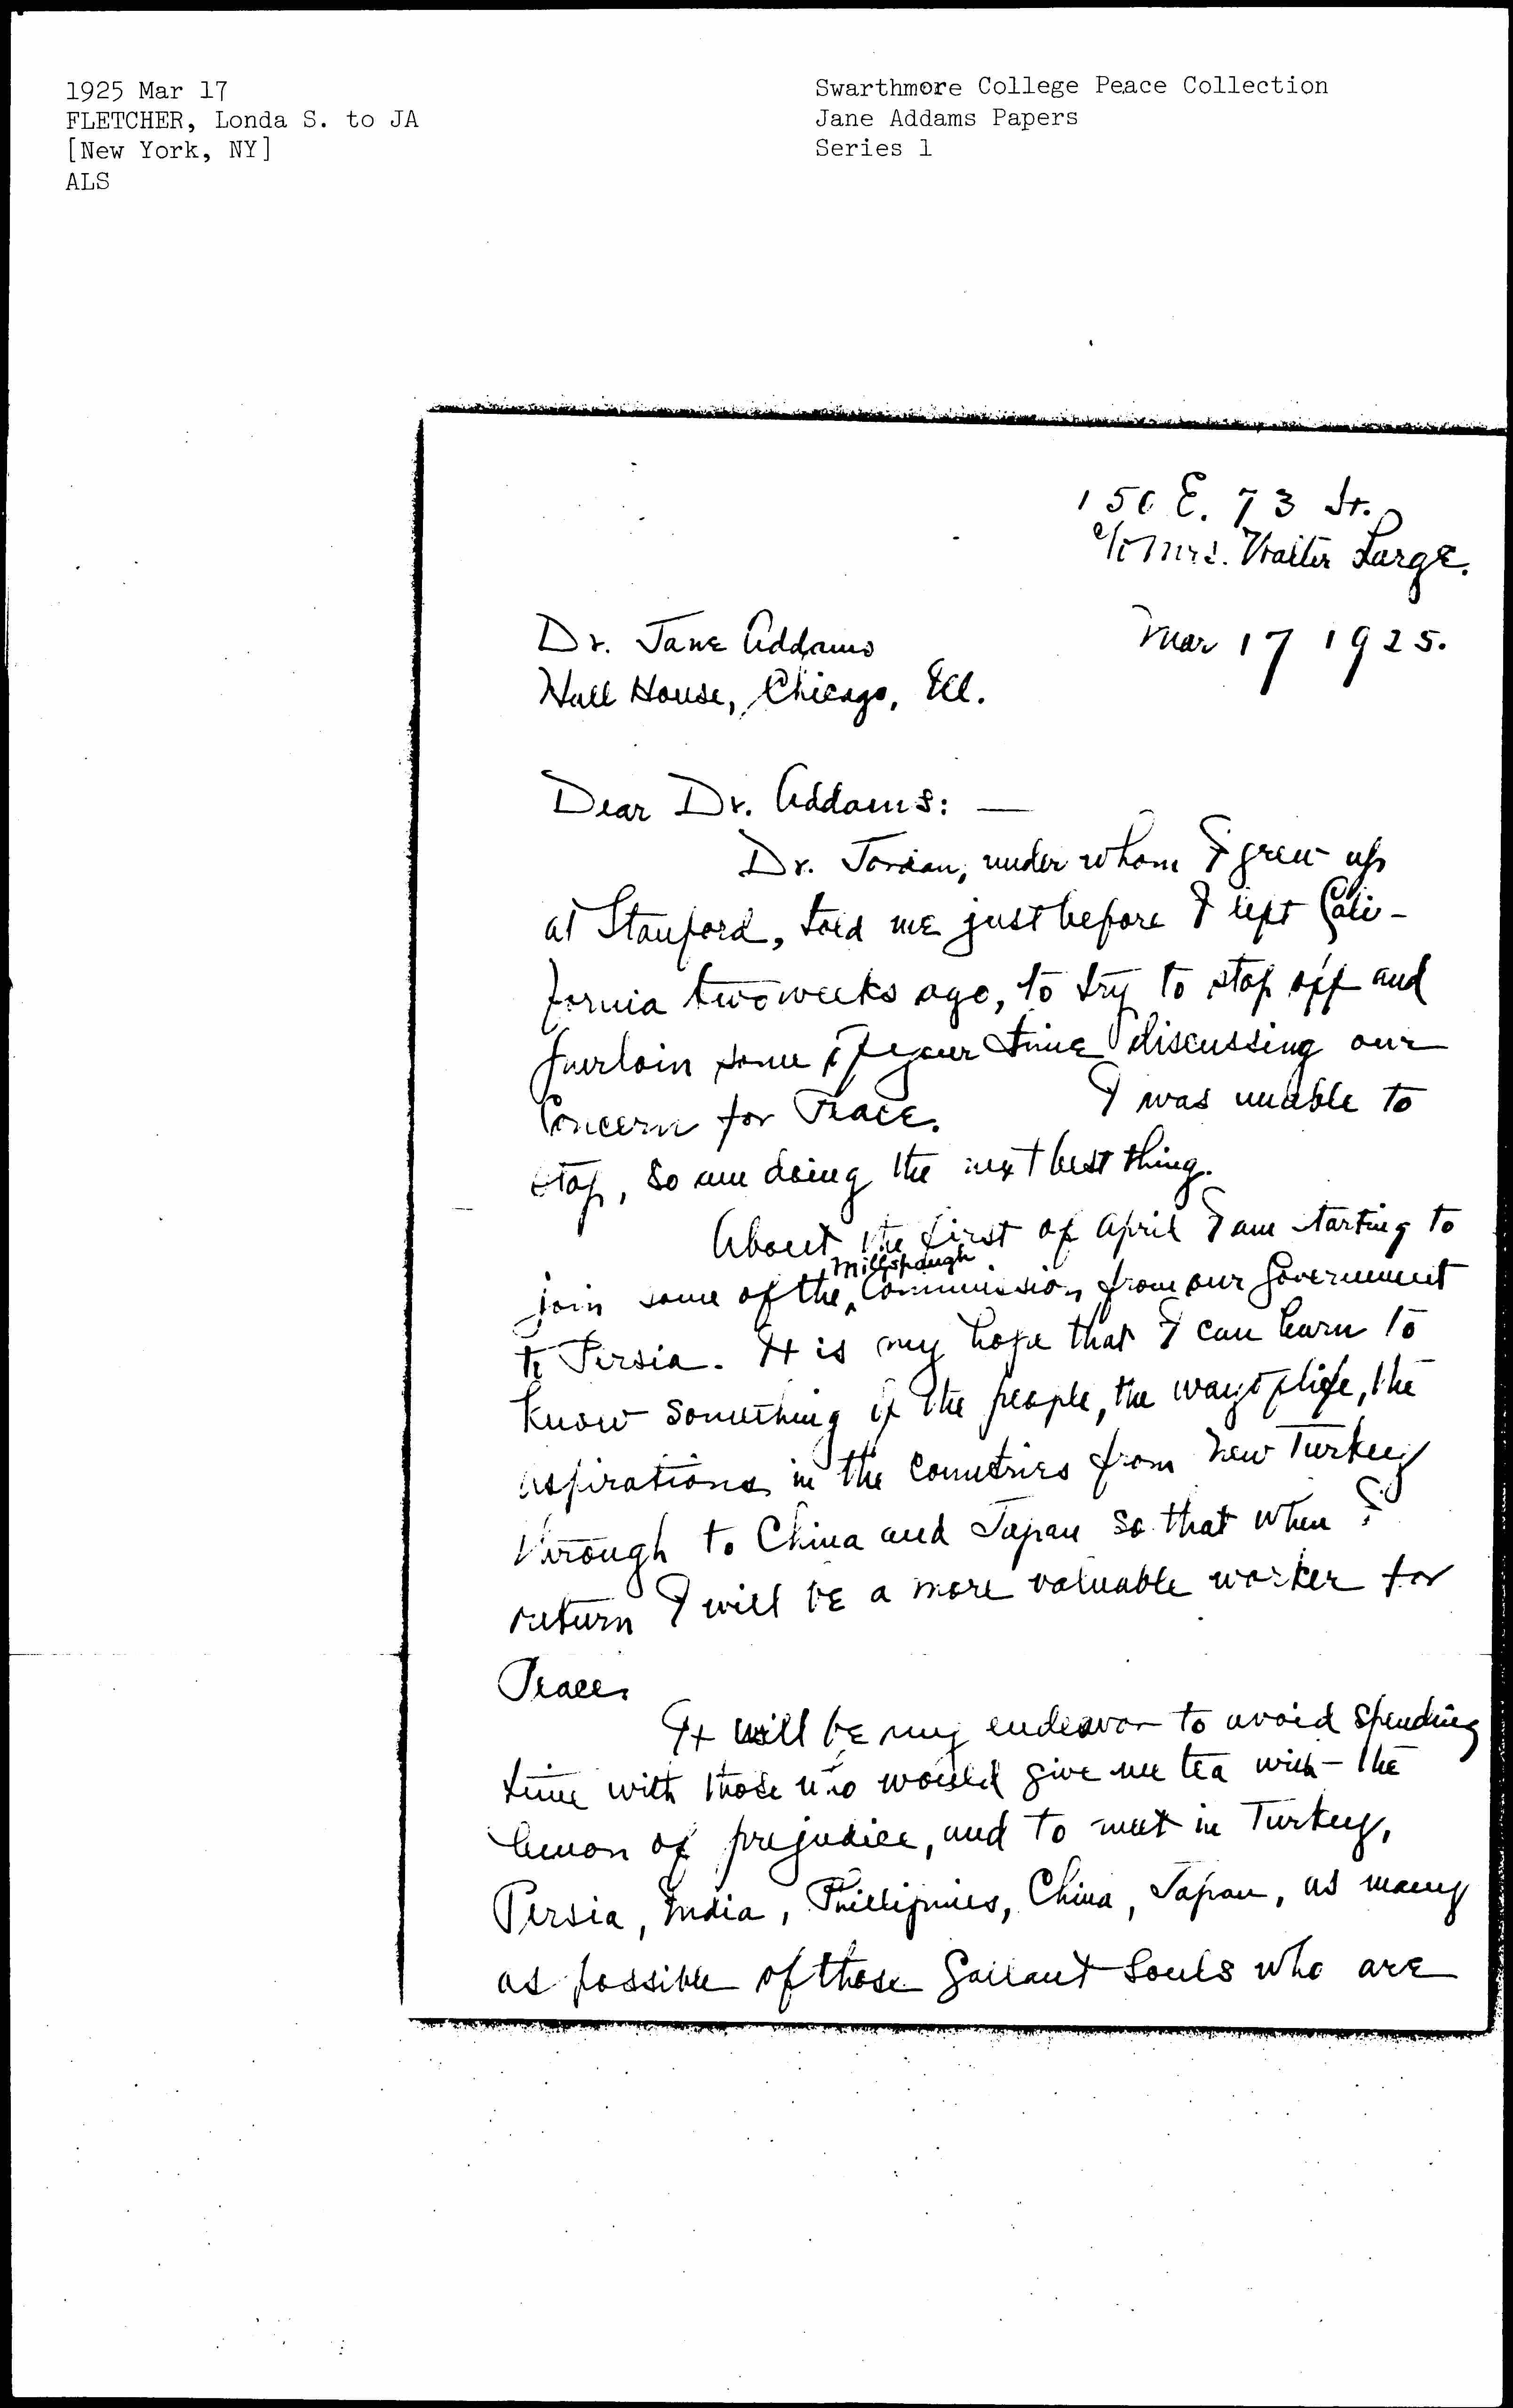 1925 Mar 17
FLETCHER, Londa S. to JA
[New York, NY]
ALS
Swarthmore College Peace Collection
Jane Addams Papers
Series 1
150 E. 73 St.
c/o Mrs. Walter Large.
Mar 17 1925.
Dr. Jane Addams
Hull House, Chicago, Ill.
Dear Dr. Addams: —
Dr. Jordan, under whom I grew up
at Stanford, told me just before I left Cali-
fornia two weeks ago, to try to stop off and
purloin some of your time discussing our
Concern for Peace. I was unable to
stop, so am doing the next best thing.
About the first of April I am starting to
join some of the Millspaugh Commission from our Government
to Persia. It is my hope that I can learn to
know something of the people, the way of life, the
aspirations in the countries from new Turkey
through to China and Japan so that when I
return I will be a more valuable worker for
Peace.
It will be my endeavor to avoid spending
time with those who would give me tea with the
lemon of prejudice, and to meet in Turkey,
Persia, India, Phillipines, China, Japan, as many
as possible of those Gallant Souls who are